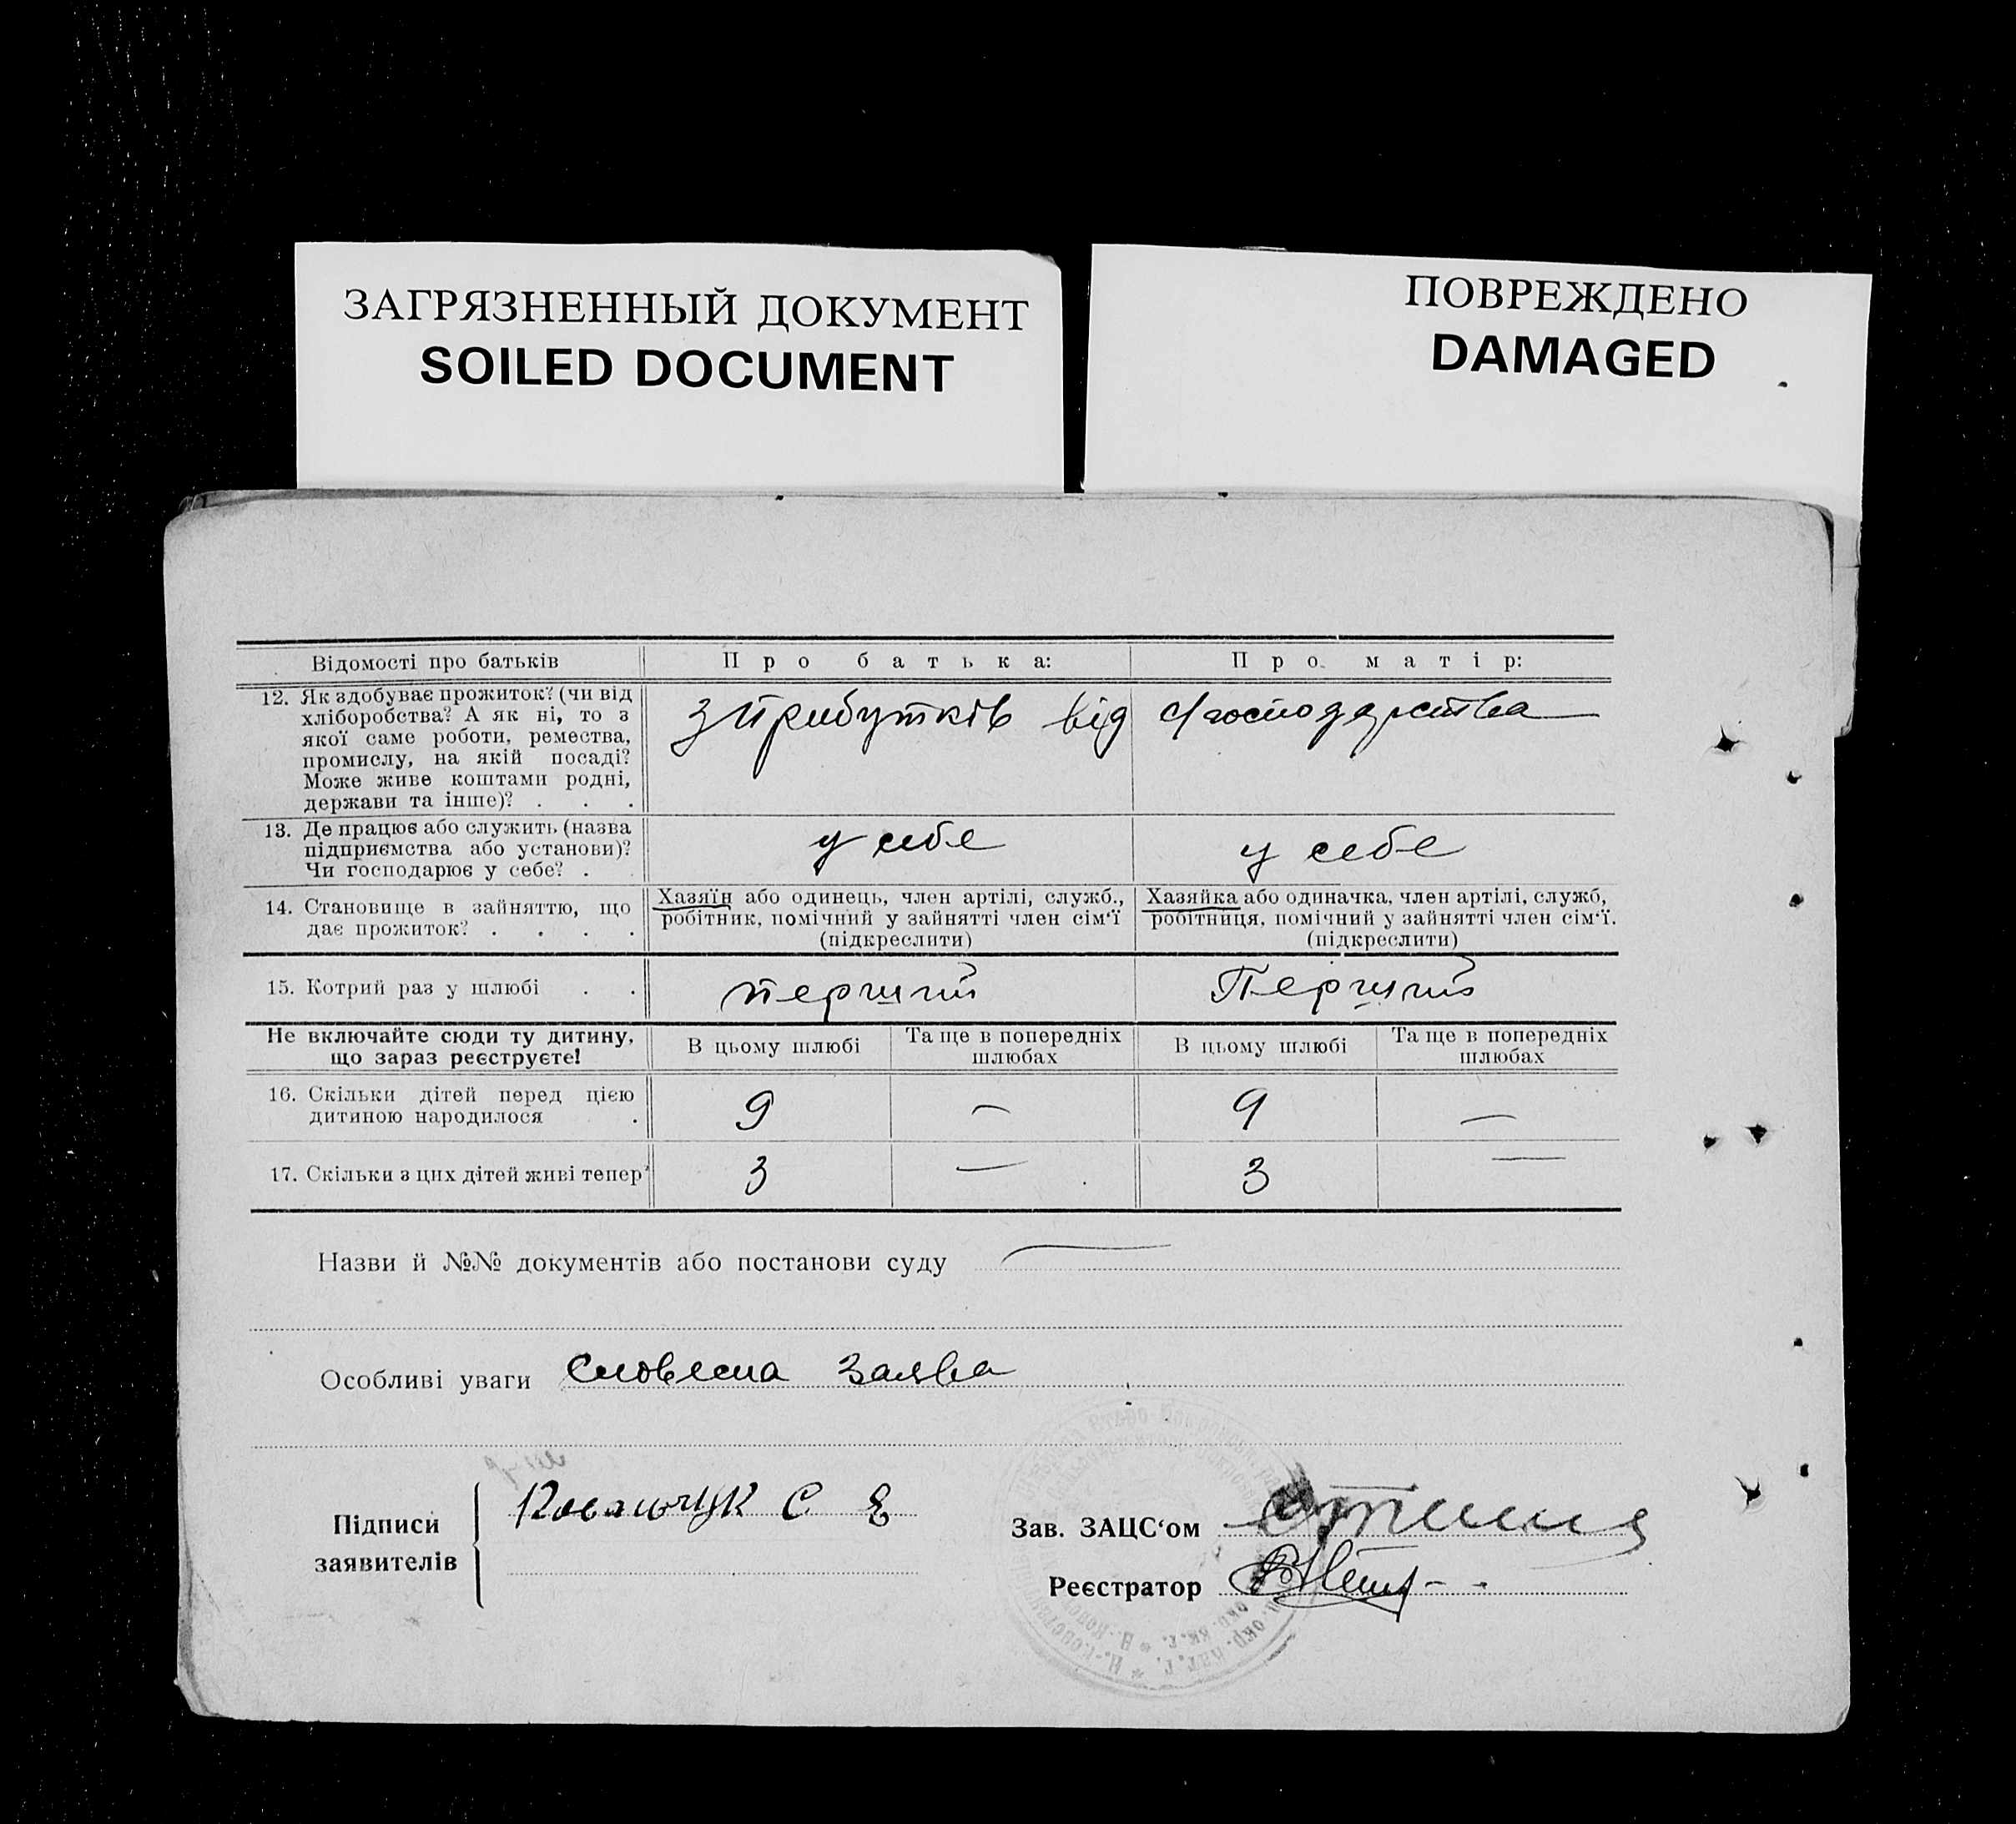 ЗАГРЯЗНЕННЫЙ ДОКУМЕНТ
SOILED DOCUMENT
ПОВРЕЖДЕНО
DAMAGED
Відомості про батьків
Про батька:
Про матір:
12. Як здобуває прожиток? (чи від
хліборобства? А як ні, то з
якої саме роботи, ремества,
промислу, на якій посаді?
Може живе коштами родні,
держави та інше)? . . .
з прибутків від с/господарства
13. Де працює або служить (назва
підприємства або установи)?
Чи господарює у себе? .
у себе
у себе
14. Становище в зайняттю, що
дає прожиток? . . . .
Хазяїн або одинець, член артілі, служб.,
робітник, помічний у зайнятті член сім'ї
(підкреслити)
Хазяйка або одиначка, член артілі, служб,
робітниця, помічний у зайнятті член сім'ї.
(підкреслити)
15. Котрий раз у шлюбі . .
перший
Перший
Не включайте сюди ту дитину,
що зараз реєструєте!
В цьому шлюбі
Та ще в попередніх
шлюбах
В цьому шлюбі
Та ще в попередніх
шлюбах
16. Скільки дітей перед цією
дитиною народилося .
9
—
9
—
17. Скільки з цих дітей живі тепер
3
—
3
—
Назви й №№ документів або постанови суду
Особливі уваги Словесна Заява
Підписи
заявителів
Ковальчук С Е
Зав. ЗАЦС'ом
Реєстратор